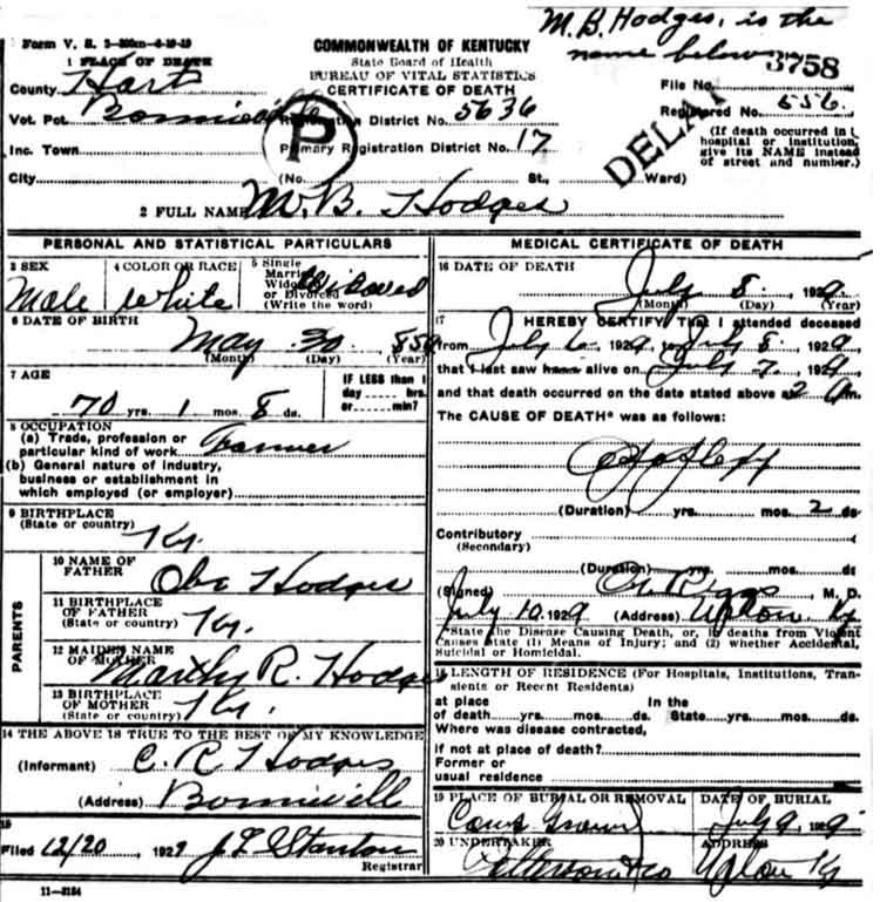 M.B. Hodges, is the
name below
3758
Form V. S.
COMMONWEALTH OF KENTUCKY
State Board of Health
BUREAU OF VITAL STATISTICS
CERTIFICATE OF DEATH
1 PLACE OF DEATH
County Hart
File No.
Vot. Pct.
Registration District No. 5636
Registered No. 556.
P
DELAY
Inc. Town
Primary Registration District No. 17
(If death occurred in
hospital or institution,
give its NAME instead
of street and number.)
City (No. St., Ward)
2 FULL NAME M. B. Hodges
PERSONAL AND STATISTICAL PARTICULARS
3 SEX
Male
4 COLOR OR RACE
White
5 Single
Married
Widowed
or Divorced
(Write the word)
Widowed
6 DATE OF BIRTH
May 30, 859
(Month) (Day) (Year)
7 AGE
70 yrs. 1 mos. 8 ds.
IF LESS than 1
day hrs.
or min?
8 OCCUPATION
(a) Trade, profession or
particular kind of work Farmer
(b) General nature of industry,
business or establishment in
which employed (or employer)
9 BIRTHPLACE
(State or country) Ky.
PARENTS
10 NAME OF
FATHER Abe Hodges
11 BIRTHPLACE
OF FATHER
(State or country) Ky.
12 MAIDEN NAME
OF MOTHER Marthy R. Hodges
13 BIRTHPLACE
OF MOTHER
(State or country) Ky.
14 THE ABOVE IS TRUE TO THE BEST OF MY KNOWLEDGE
(Informant) C. R. Hodges
(Address) Bonniwill
15
Filed 12/20, 1929 J L Stanton
Registrar
11-3184
MEDICAL CERTIFICATE OF DEATH
16 DATE OF DEATH
July 8, 1929
(Month) (Day) (Year)
17 HEREBY CERTIFY, That I attended deceased
from July 6, 1929, to July 8, 1929,
that I last saw alive on July 7, 1929,
and that death occurred on the date stated above at 2 am.
The CAUSE OF DEATH* was as follows:
(Duration) yrs. mos. 2 ds
Contributory
(Secondary)
(Duration) yrs. mos. ds
(Signed) Riggs, M. D.
July 10, 1929 (Address) Upton Ky
*State the Disease Causing Death, or, in deaths from Violent
Causes state (1) Means of Injury; and (2) whether Accidental,
Suicidal or Homicidal.
LENGTH OF RESIDENCE (For Hospitals, Institutions, Tran-
sients or Recent Residents)
at place In the
of death yrs. mos. ds. State yrs. mos. ds.
Where was disease contracted,
If not at place of death?
Former or
usual residence
19 PLACE OF BURIAL OR REMOVAL
DATE OF BURIAL
July 9, 1929
20 UNDERTAKER
ADDRESS
Upton Ky